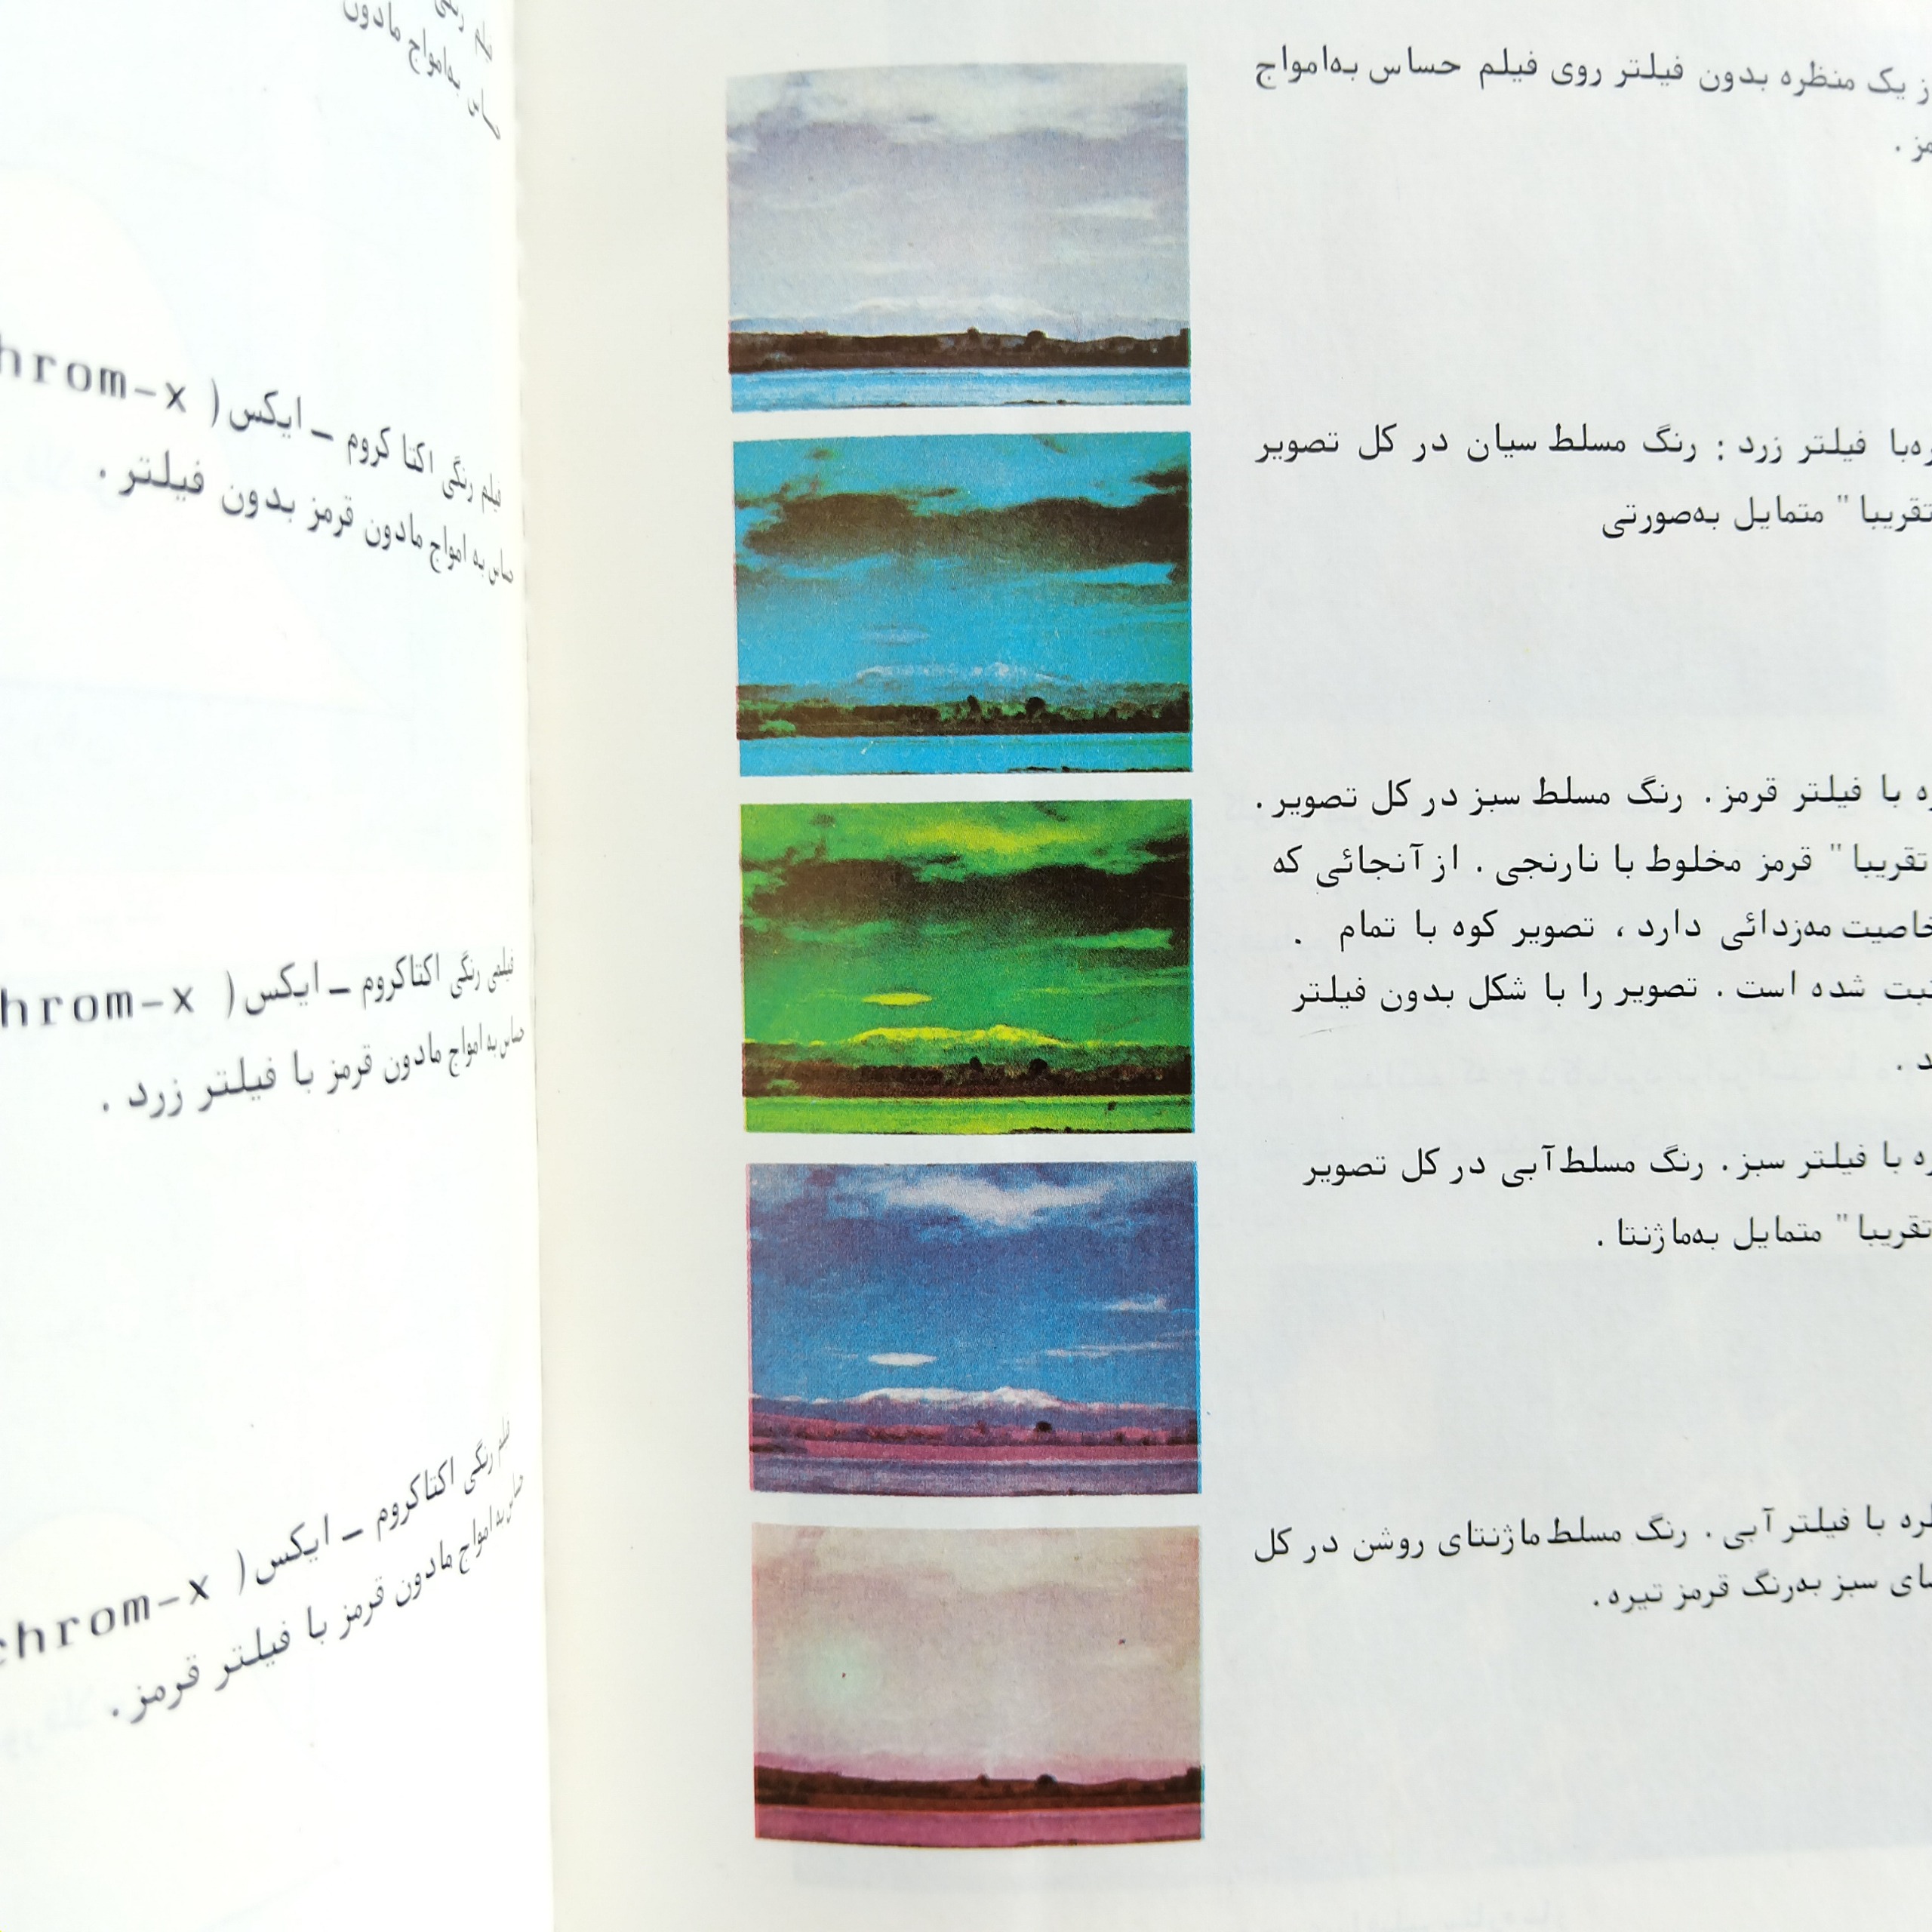 از یک منظره بدون فیلتر روی فیلم حساس به‌امواج
با فیلتر زرد : رنگ مسلط سیان در کل تصویر
تقریبا " متمایل به‌صورتی
با فیلتر قرمز . رنگ مسلط سبز در کل تصویر .
تقریبا " قرمز مخلوط با نارنجی . از آنجائی که
خاصیت مه‌زدائی دارد ، تصویر کوه با تمام .
شده است . تصویر را با شکل بدون فیلتر
با فیلتر سبز . رنگ مسلط آبی در کل تصویر
تقریبا " متمایل به‌ماژنتا .
با فیلتر آبی . رنگ مسلط ماژنتای روشن در کل
سبز به‌رنگ قرمز تیره .
رنگی
به‌امواج مادون
فیلم رنگی اکتا کروم – ایکس ( hrom-x
حساس به امواج مادون قرمز بدون فیلتر .
فیلمی رنگی اکتاکروم – ایکس ( hrom-x
حساس به امواج مادون قرمز با فیلتر زرد .
فیلم رنگی اکتاکروم – ایکس ( chrom-x
حساس به امواج مادون قرمز با فیلتر قرمز .